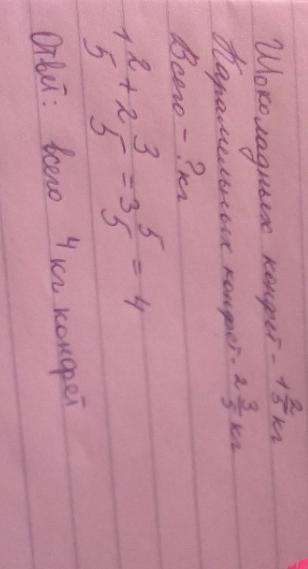 Шоколадных конфет - 1 2/5 кг
Карамельных конфет - 2 3/5 кг
Всего - ? кг
1 2/5 + 2 3/5 = 3 5/5 = 4
Ответ: всего 4 кг конфет